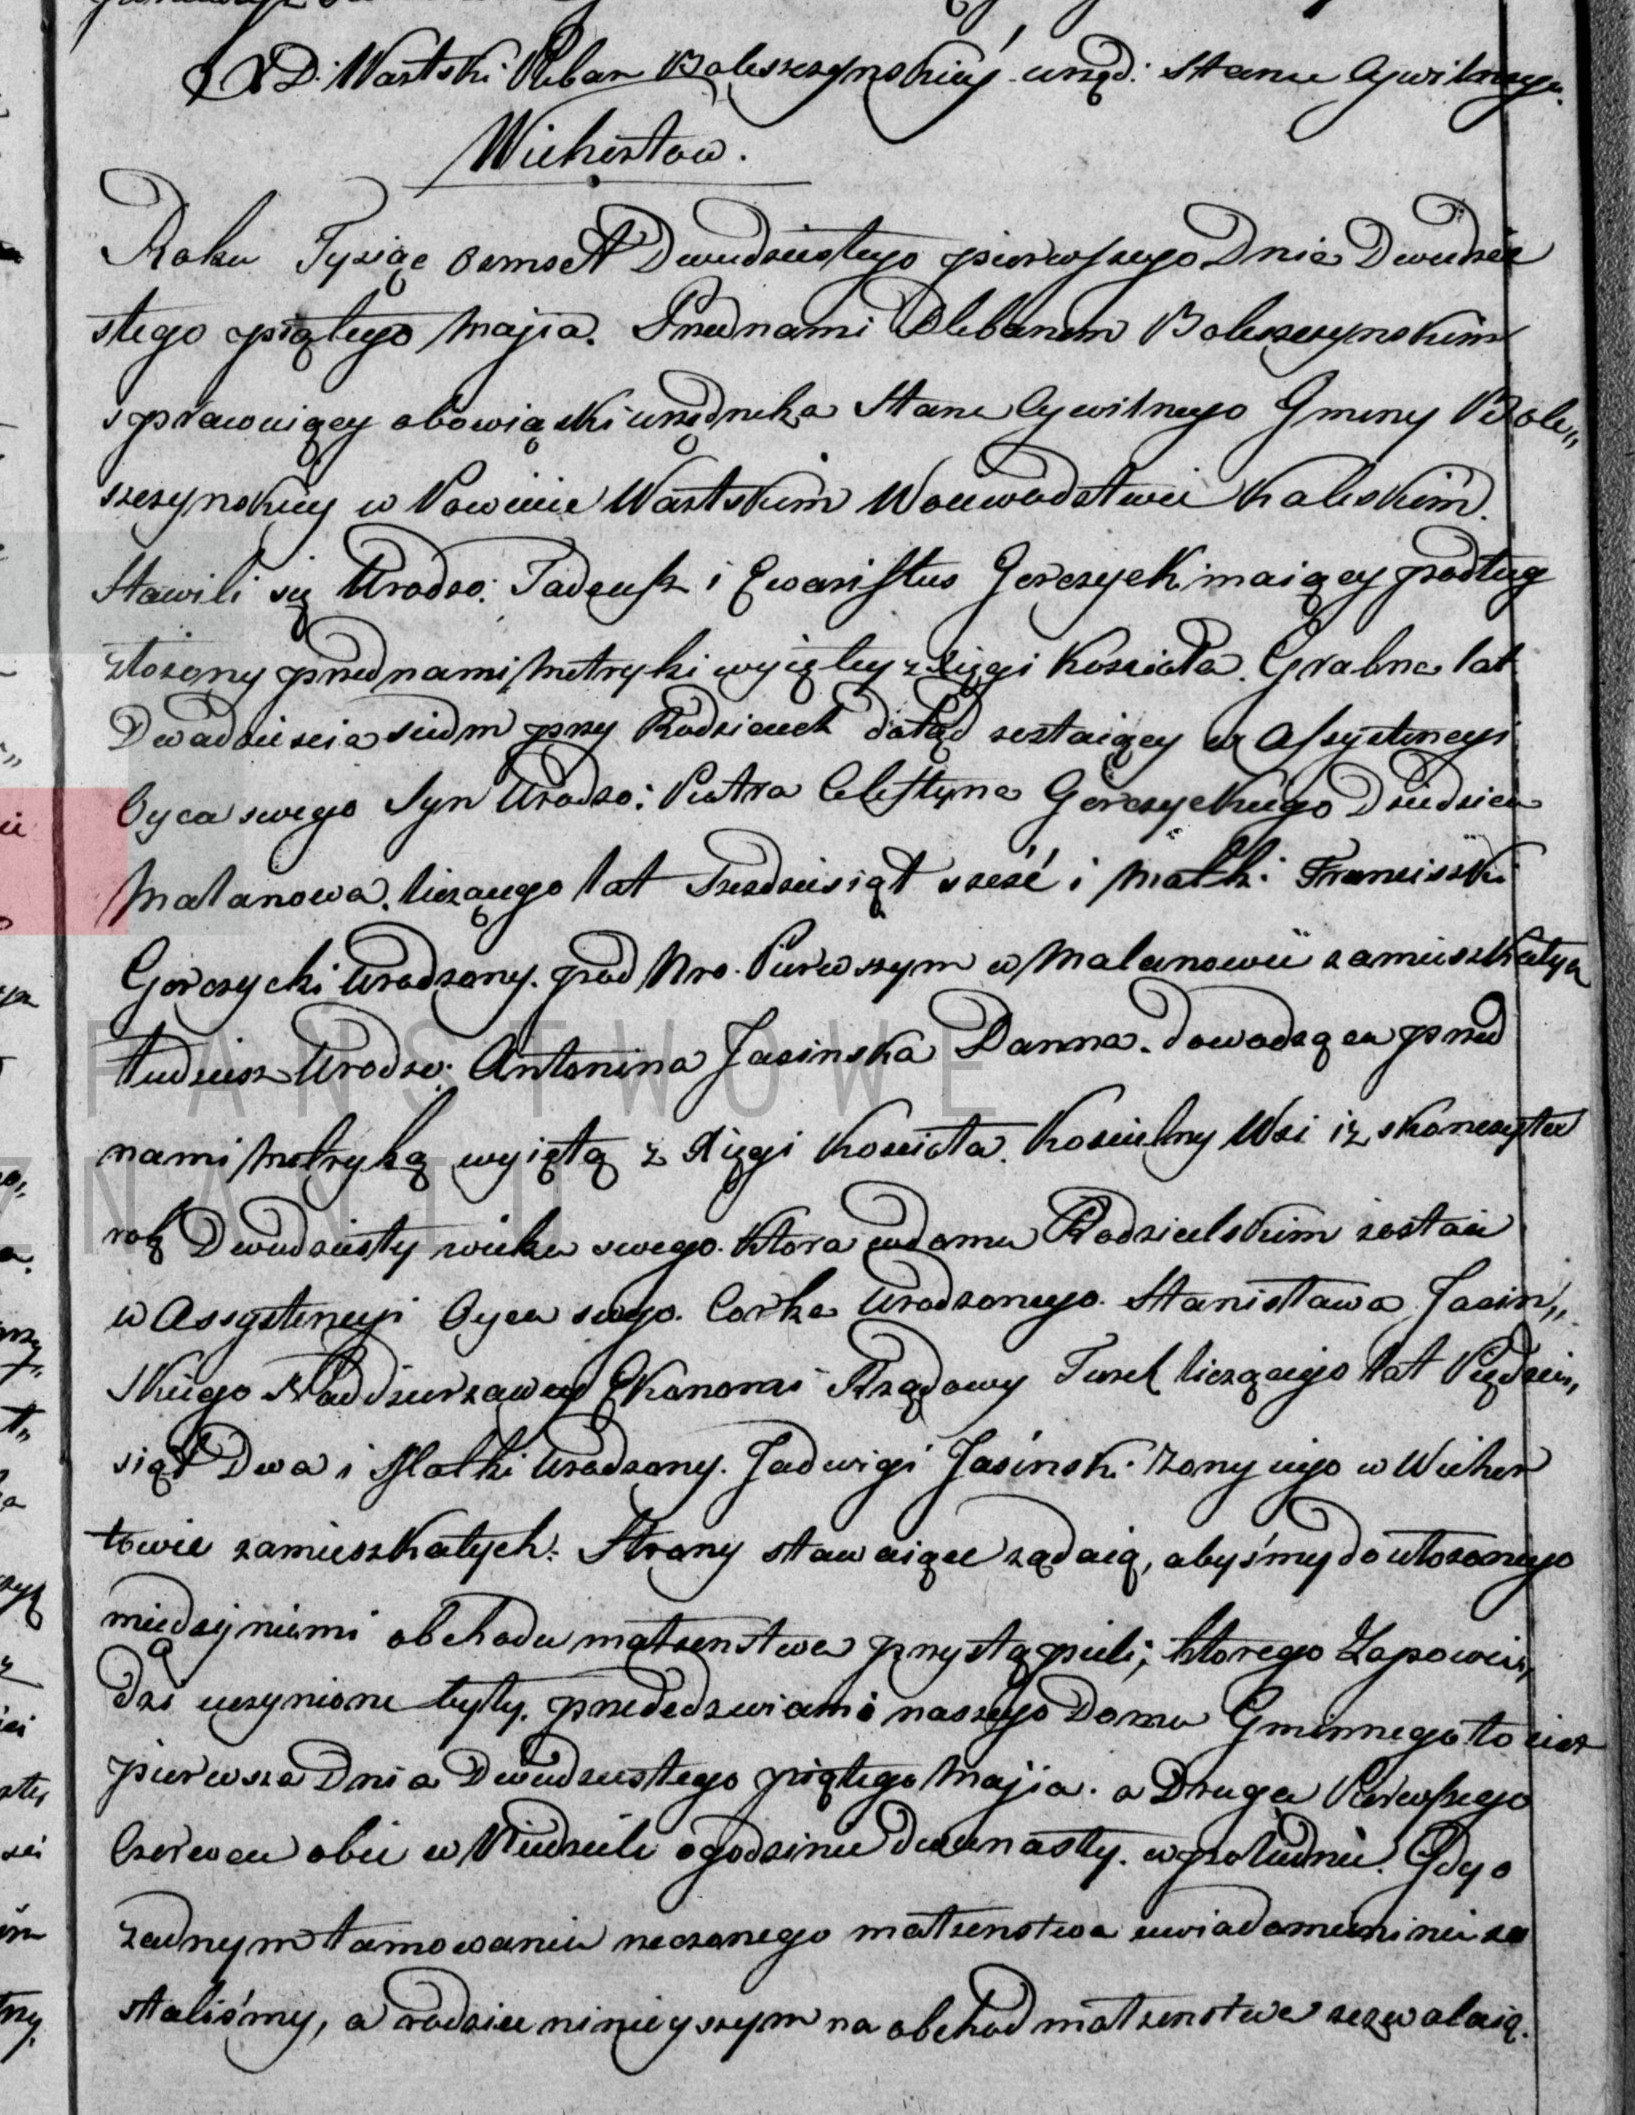 X D. Wartski Pleban Boleszczynskiey urzęd: Stanu Cywilnego.
Wichertow.
Roku Tysiąc osmset Dwudziestego pierwszego Dnia Dwudzie
stego piątego Majia. Przed nami Plebanem Boleszczynskim
sprawuiący obowiązki urzędnika Stanu Cywilnego Gminy Bole„
szczynskiey w Powiecie Wartskim Woiewodztwie Kaliskim.
Stawili się Urodzo: Tadeusz i Ewaristus Gorczycki maiący podług
złozony przed nami Metryki wyięty z xięgi Koscioła Grabna lat
Dwadziescia siedm przy Rodzicach dotąd zostaiący w Assystencyi
Oyca swego Syn Urodzo: Piotra Celestyna Gorczyckiego Dziedzica
Malanowa, liczącego lat Szesdziesiąt szesć i Matki Franciszki
Gorczycki Urodzony. pod Nro. Pierwszym w Malanowie zamieszkałych
tudziesz Urodzo: Antonina Jasinska Panna. dowodząca przed
nami Metryką wyiętą z Xięgi Koscioła. Koscielny Wsi iz skonczyła
rok Dwudziesty wieku swego. Ktora w domu Rodzicelskim zostaie
w Assystencyi Oyca swego. Corka Urodzonego. Stanisława Jasin„
skiego Naddzierzawcy Ekonomi Rządowy Turek liczącego lat Pięćdzie„
siąt Dwa i Matki Urodzony. Jadwigi Jasinski Zony iego w Wicher
towie zamieszkałych. Strony stawaiące ządaią, abyśmy do ułozonego
między niemi obchodu małzenstwa przystąpieli; ktorego Zapowie„
dzi uczynione były. przededzwiami naszego Domu Gminnego to iest
pierwsza Dnia Dwudziestego piątego Majia. a Druga Pierwszego
Czerwca obie w Niedziele o godzinie dwunasty. w południe. Gdy o
zadnym tamowaniu rzeczonego małzenstwa uwiadomieni nie zo
staliśmy, a rodzice ninieyszym na obchod małzenstwa zezwalaią.